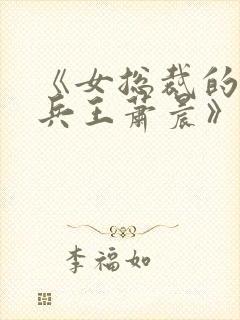 《女总裁的
兵王萧晨》
李福如